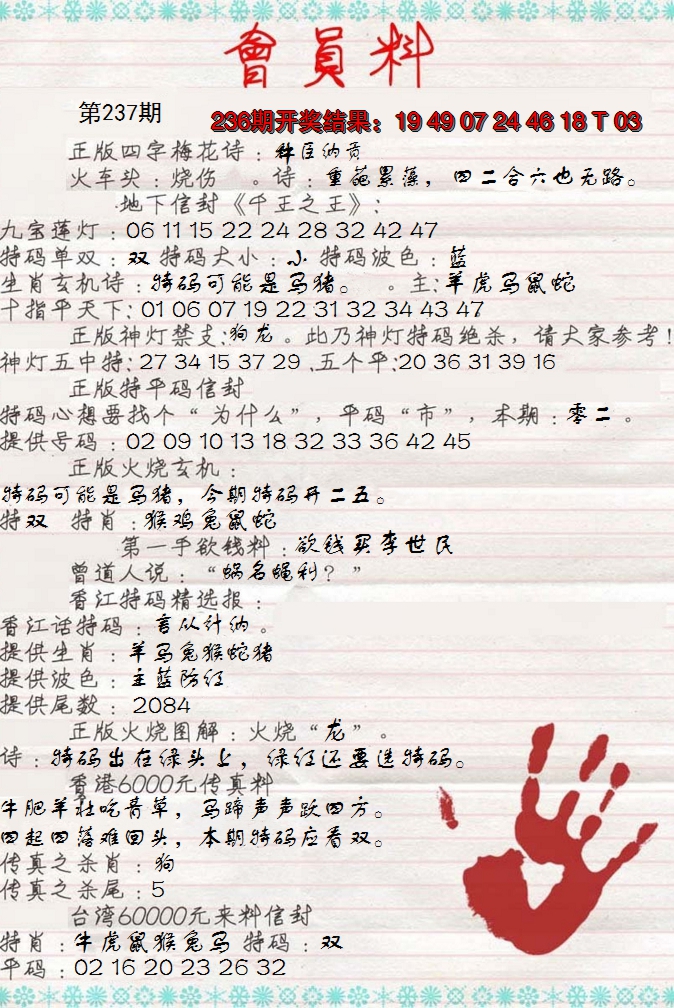 會員料
第237期
236期开奖结果：19 49 07 24 46 18 T 03
正版四字梅花诗：称臣纳贡
火车头：烧伤 。诗：重葩累藻，四二合六也无路。
地下信封《千王之王》：
九宝莲灯：06 11 15 22 24 28 32 42 47
特码单双：双 特码大小：小 特码波色：蓝
生肖玄机诗：特码可能是马猪。 。主：羊虎马鼠蛇
十指平天下：01 06 07 19 22 31 32 34 43 47
正版神灯禁支：狗龙。此乃神灯特码绝杀，请大家参考！
神灯五中特：27 34 15 37 29 .五个平：20 36 31 39 16
正版特平码信封
特码心想要找个“为什么”，平码“市”，本期：零二。
提供号码：02 09 10 13 18 32 33 36 42 45
正版火烧玄机：
特码可能是马猪，今期特码开二五。
特双 特肖：猴鸡兔鼠蛇
第一手欲钱料：欲钱买李世民
曾道人说：“蜗名蝇利？”
香江特码精选报：
香江话特码：言从计纳。
提供生肖：羊马兔猴蛇猪
提供波色：主蓝防红
提供尾数：2084
正版火烧图解：火烧“龙”。
诗：特码出在绿头上，绿红还要选特码。
香港6000元传真料
牛肥羊壮吃青草，马蹄声声跃四方。
四起四落难回头，本期特码应看双。
传真之杀肖：狗
传真之杀尾：5
台湾60000元来料信封
特肖：牛虎鼠猴兔马 特码：双
平码：02 16 20 23 26 32